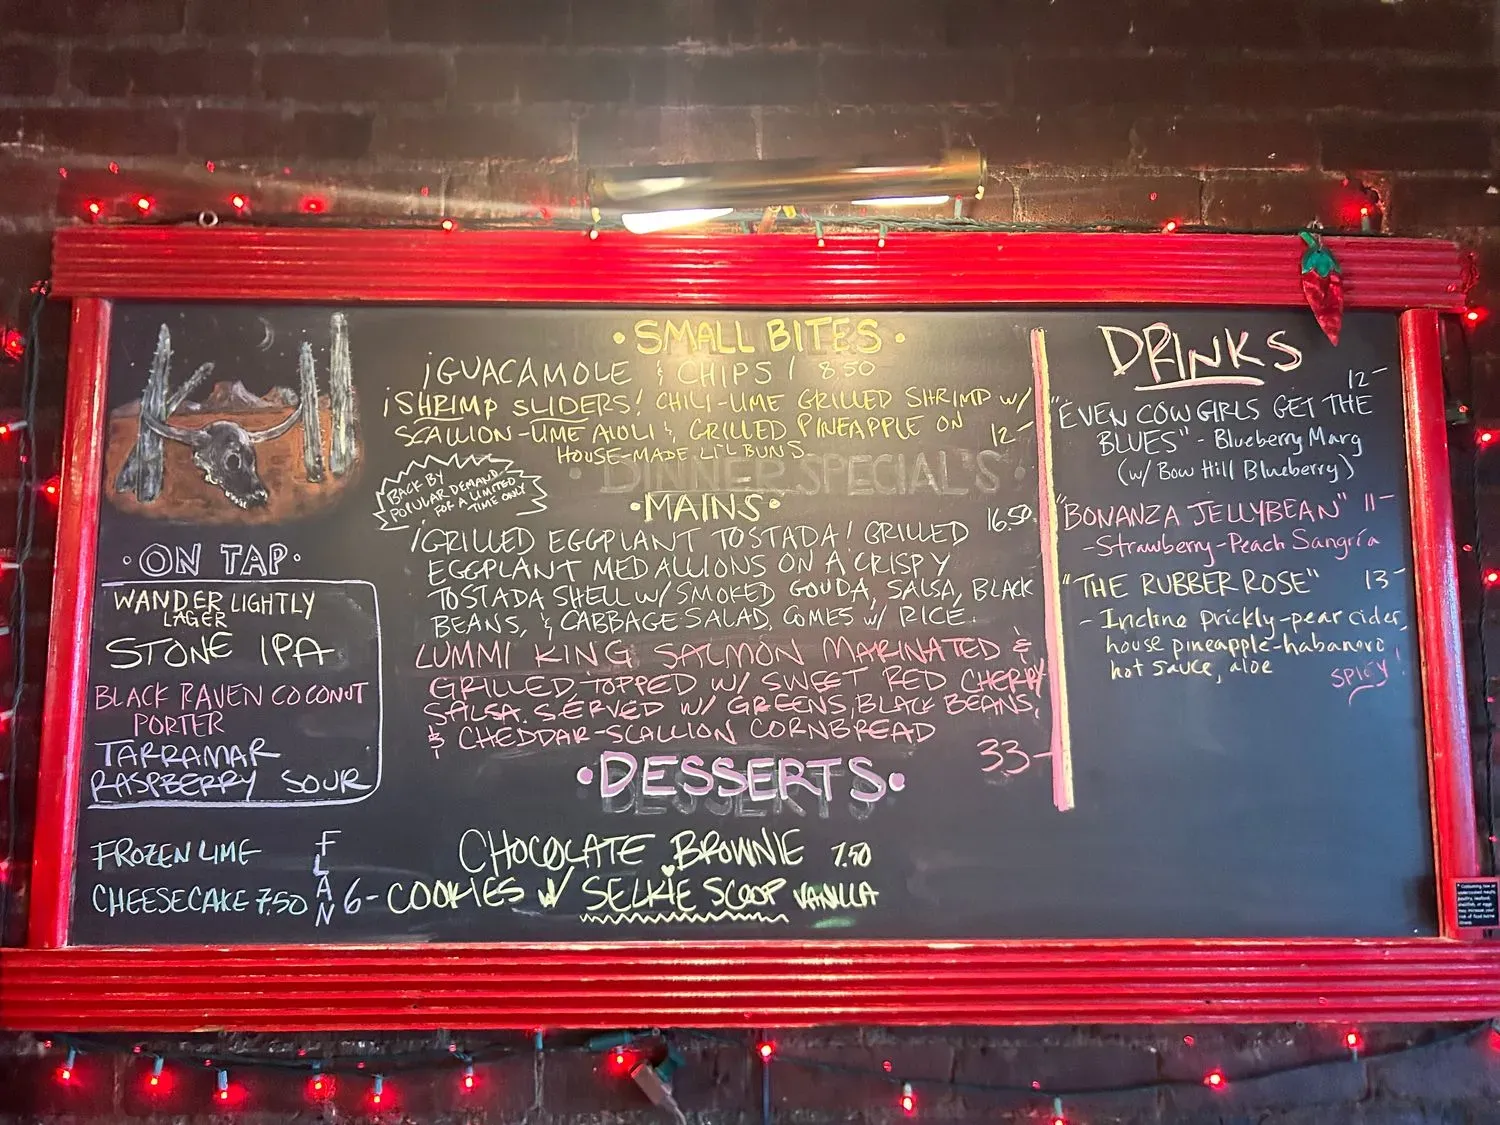 ·SMALL BITES·
¡GUACAMOLE & CHIPS! 8.50
¡SHRIMP SLIDERS! CHILI-LIME GRILLED SHRIMP W/
SCALLION-LIME AIOLI & GRILLED PINEAPPLE ON 12-
HOUSE-MADE LI'L BUNS
DINNER SPECIAL'S
BACK BY
POPULAR DEMAND
FOR A LIMITED
TIME ONLY
·MAINS·
¡GRILLED EGGPLANT TOSTADA! GRILLED 16.50
EGGPLANT MEDALLIONS ON A CRISPY
TOSTADA SHELL W/ SMOKED GOUDA, SALSA, BLACK
BEANS, & CABBAGE SALAD, COMES W/ RICE.
LUMMI KING SALMON MARINATED &
GRILLED TOPPED W/ SWEET RED CHERRY
SALSA. SERVED W/ GREENS, BLACK BEANS,
& CHEDDAR-SCALLION CORNBREAD
33-
·DESSERTS·
DESSERTS
CHOCOLATE BROWNIE 7.50
COOKIES W/ SELKIE SCOOP VANILLA
FLAN 6-
FROZEN LIME
CHEESECAKE 7.50
·ON TAP·
WANDER LIGHTLY
LAGER
STONE IPA
BLACK RAVEN COCONUT
PORTER
TARRAMAR
RASPBERRY SOUR
DRINKS
12-
"EVEN COWGIRLS GET THE
BLUES" - Blueberry Marg
(w/ Bow Hill Blueberry)
"BONANZA JELLYBEAN" 11-
-Strawberry-Peach Sangría
"THE RUBBER ROSE" 13-
- Incline prickly-pear cider,
house pineapple-habanero
hot sauce, aloe
SPICY!